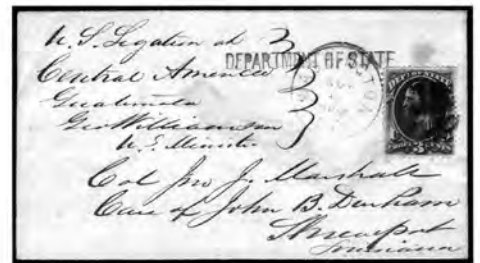 U.S. Legation at
Central America
Guatemala
Geo Williamson
U.S. Minister
DEPARTMENT OF STATE
DEP'T OF STATE
Col Jno J. Marshall
Care of John B. Durham
Shreveport
Louisiana